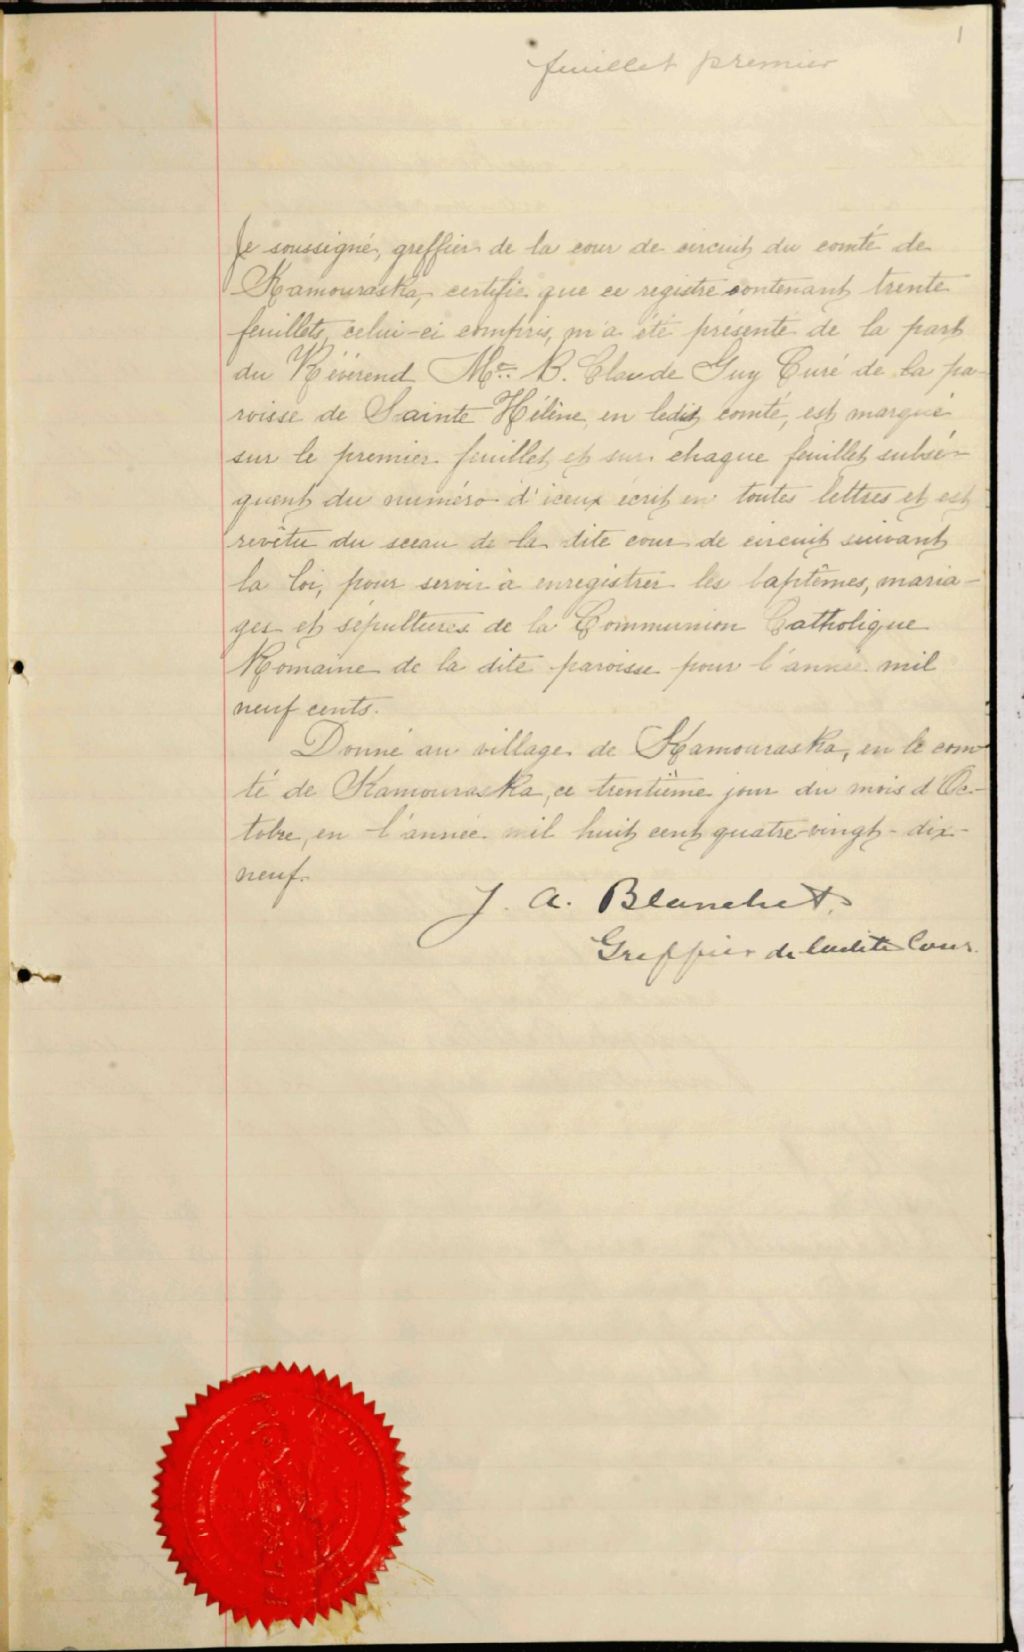 1
feuillet premier
Je soussigné, greffier de la cour de circuit du comté de
Kamouraska, certifie que ce registre contenant trente
feuillets, celui-ci compris, m'a été présenté de la part
du Révérend Mr. B. Claude Guy Curé de la pa-
roisse de Sainte Hélène, en ledit comté, est marqué
sur le premier feuillet et sur chaque feuillet subsé-
quent du numéro d'iceux écrit en toutes lettres et est
revêtu du sceau de la dite cour de circuit suivant
la loi, pour servir à enregistrer les baptêmes, maria-
ges et sépultures de la Communion Catholique
Romaine de la dite paroisse pour l'année mil
neuf cents.
Donné au village de Kamouraska, en le com-
té de Kamouraska, ce trentième jour du mois d'Oc-
tobre, en l'année mil huit cent quatre-vingt-dix-
neuf.
J. A. Blanchet.
Greffier de ladite Cour.